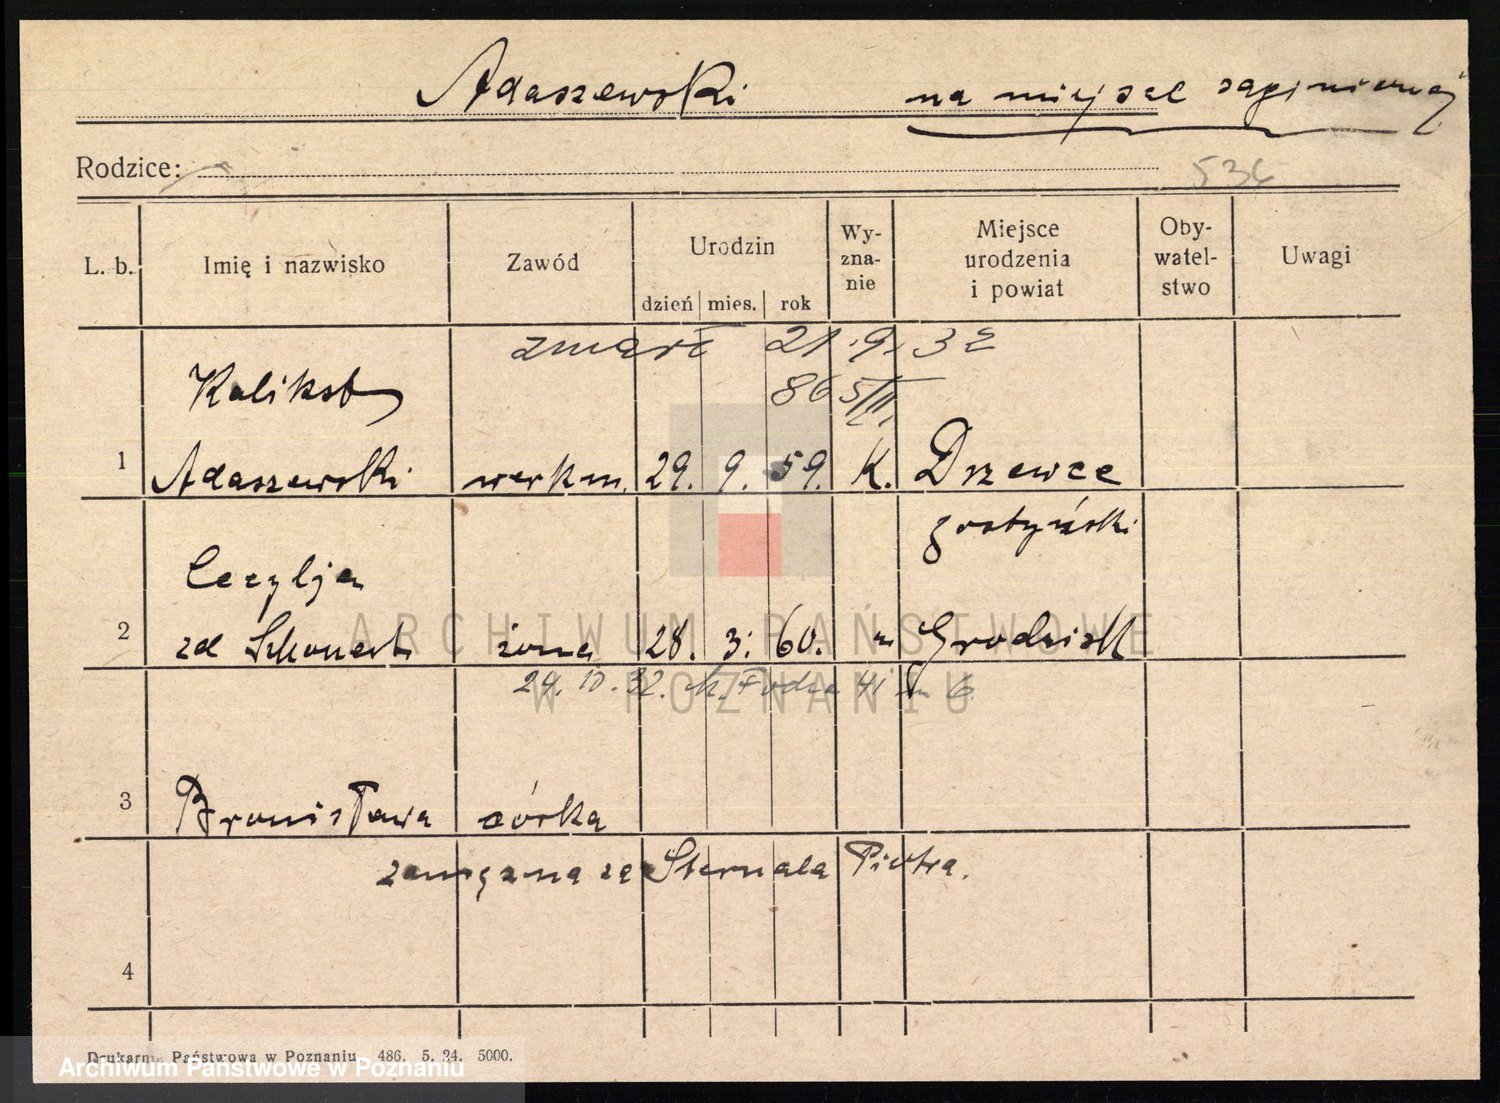 Adaszewski na miejsce zaginionej
Rodzice:
536
L. b. Imię i nazwisko Zawód Urodzin dzień mies. rok Wy-zna-nie Miejsce urodzenia i powiat Oby-watel-stwo Uwagi
zmarł 21.9.32
86 5/III.
Kalikst
1 Adaszewski werkm. 29. 9. 59. K. Drzewce
gostyński
Cecylja
2 zd żona 28. 3. 60. " Grodzisk
24. 10. 32. 41 m 6
3 Bronisława córka
zamężna za Sternala Piotra.
4
Drukarnia Państwowa w Poznaniu 486. 5. 24. 5000.
ARCHIWUM PAŃSTWOWE
W POZNANIU
Archiwum Państwowe w Poznaniu